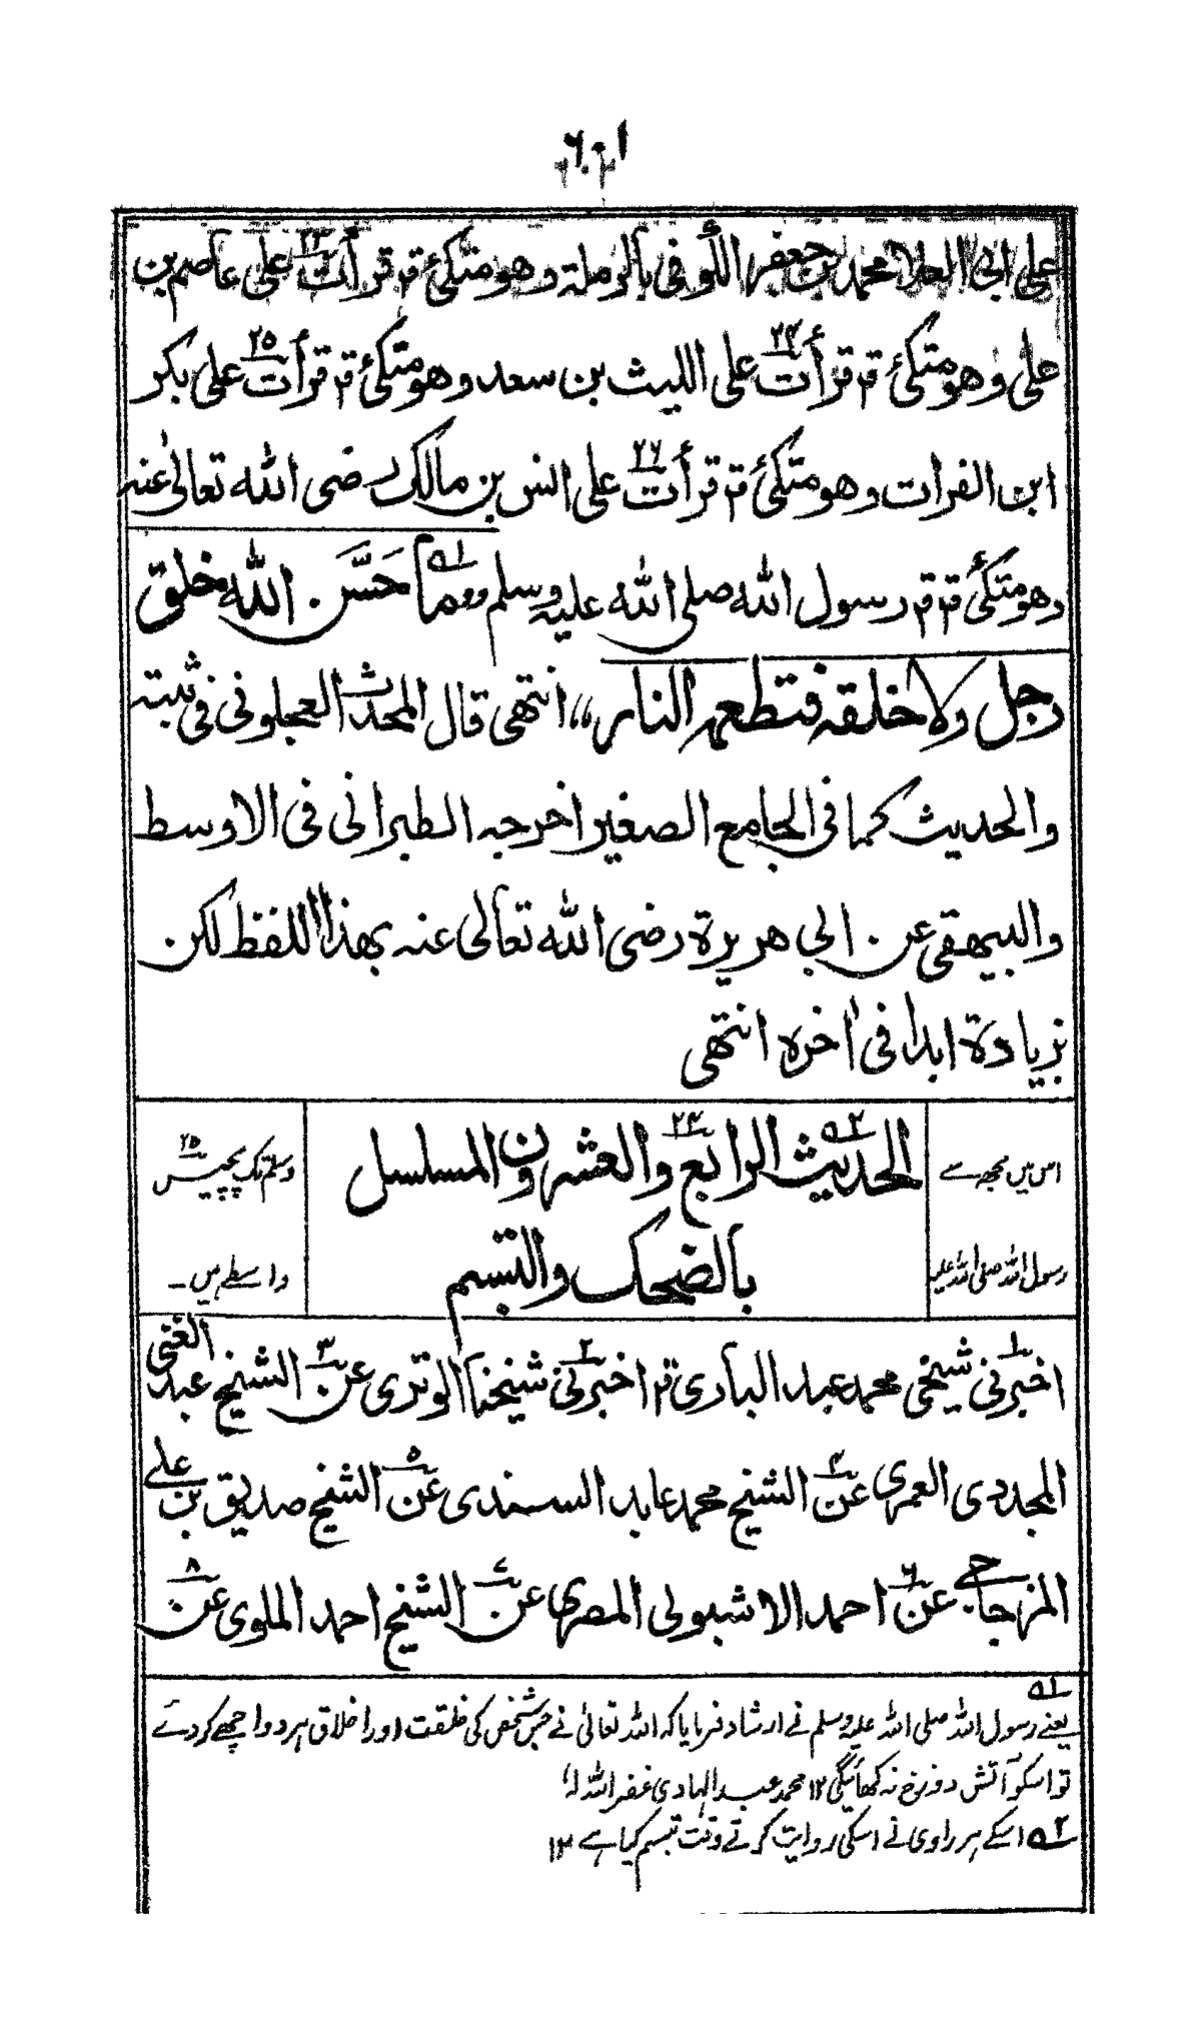 على ابى العلاء محمد بن جعفر الكوفى بالرملة وهو متكئ قر قرأت ٢٣ على عاصم بن
على وهو متكئ قر قرأت ٢٤ على الليث بن سعد وهو متكئ قر قرأت ٢٥ على بكر
ابن الفرات وهو متكئ قر قرأت ٢٦ على انس بن مالك رضى الله تعالى عنه
وهو متكئ قر قر رسول الله صلى الله عليه وسلم ,,ما حَسَّن الله خلق
رجل ولا خلقه فتطعمه النار،، انتهى قال المحدث العجلونى فى ثبته
والحديث كما فى الجامع الصغير اخرجه الطبرانى فى الاوسط
والبيهقى عن ابى هريرة رضى الله تعالى عنه بهذا اللفظ لكن
بزيادة ابدا فى اخره انتهى
اس میں مجھ سے
رسول اللہ صلی اللہ علیہ
الحديث الرابع والعشرون المسلسل
بالضحك والتبسم
وسلم تک پچیس ٢٥
واسطے ہیں۔
اخبرنى ١ شيخى محمد عبد البارى قر اخبرنى ٢ شيخنا الوترى عن ٣ الشيخ عبد الغنى
المجددى العمرى عن ٤ الشيخ محمد عابد السندى عن ٥ الشيخ صديق بن على
المزجاجى عن ٦ احمد الاشبولى المصرى عن ٧ الشيخ احمد الملوى عن ٨
لہ یعنے رسول اللہ صلی اللہ علیہ وسلم نے ارشاد فرمایا کہ اللہ تعالیٰ نے جس شخص کی خلقت اور اخلاق ہر دو اچھے کر دے
تو اسکو آتش دوزخ نہ کھائیگی ١٢ محمد عبد الہادی غفر اللہ لہ
٢ہ اسکے ہر راوی نے اسکی روایت کرتے وقت تبسم کیا ہے ١٢